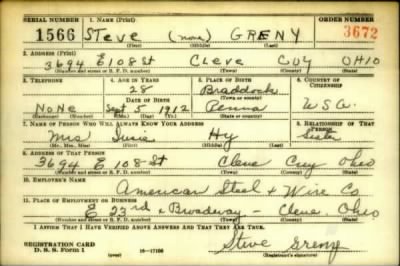 SERIAL NUMBER 1. NAME (Print) ORDER NUMBER
1566 STEVE (none) GRENY 3672
(First) (Middle) (Last)
2. ADDRESS (Print)
3694 E 108 St Cleve Cuy OHIO
(Number and street or R. F. D. number) (Town) (County) (State)
3. TELEPHONE 4. AGE IN YEARS 5. PLACE OF BIRTH 6. COUNTRY OF CITIZENSHIP
28 Braddock
DATE OF BIRTH (Town or county)
None Sept 5 1912 Penna U S A
(Exchange) (Number) (Mo.) (Day) (Yr.) (State or country)
7. NAME OF PERSON WHO WILL ALWAYS KNOW YOUR ADDRESS 8. RELATIONSHIP OF THAT PERSON
Mrs Susie Hy Sister
(Mr., Mrs., Miss) (First) (Middle) (Last)
9. ADDRESS OF THAT PERSON
3694 E 108 St Cleve Cuy Ohio
(Number and street or R. F. D. number) (Town) (County) (State)
10. EMPLOYER'S NAME
American Steel & Wire Co
11. PLACE OF EMPLOYMENT OR BUSINESS
E 23rd & Broadway - Cleve. Ohio
(Number and street or R. F. D. number) (Town) (County) (State)
I AFFIRM THAT I HAVE VERIFIED ABOVE ANSWERS AND THAT THEY ARE TRUE.
REGISTRATION CARD
D. S. S. Form 1 (over) Steve Greny
(Registrant's signature)